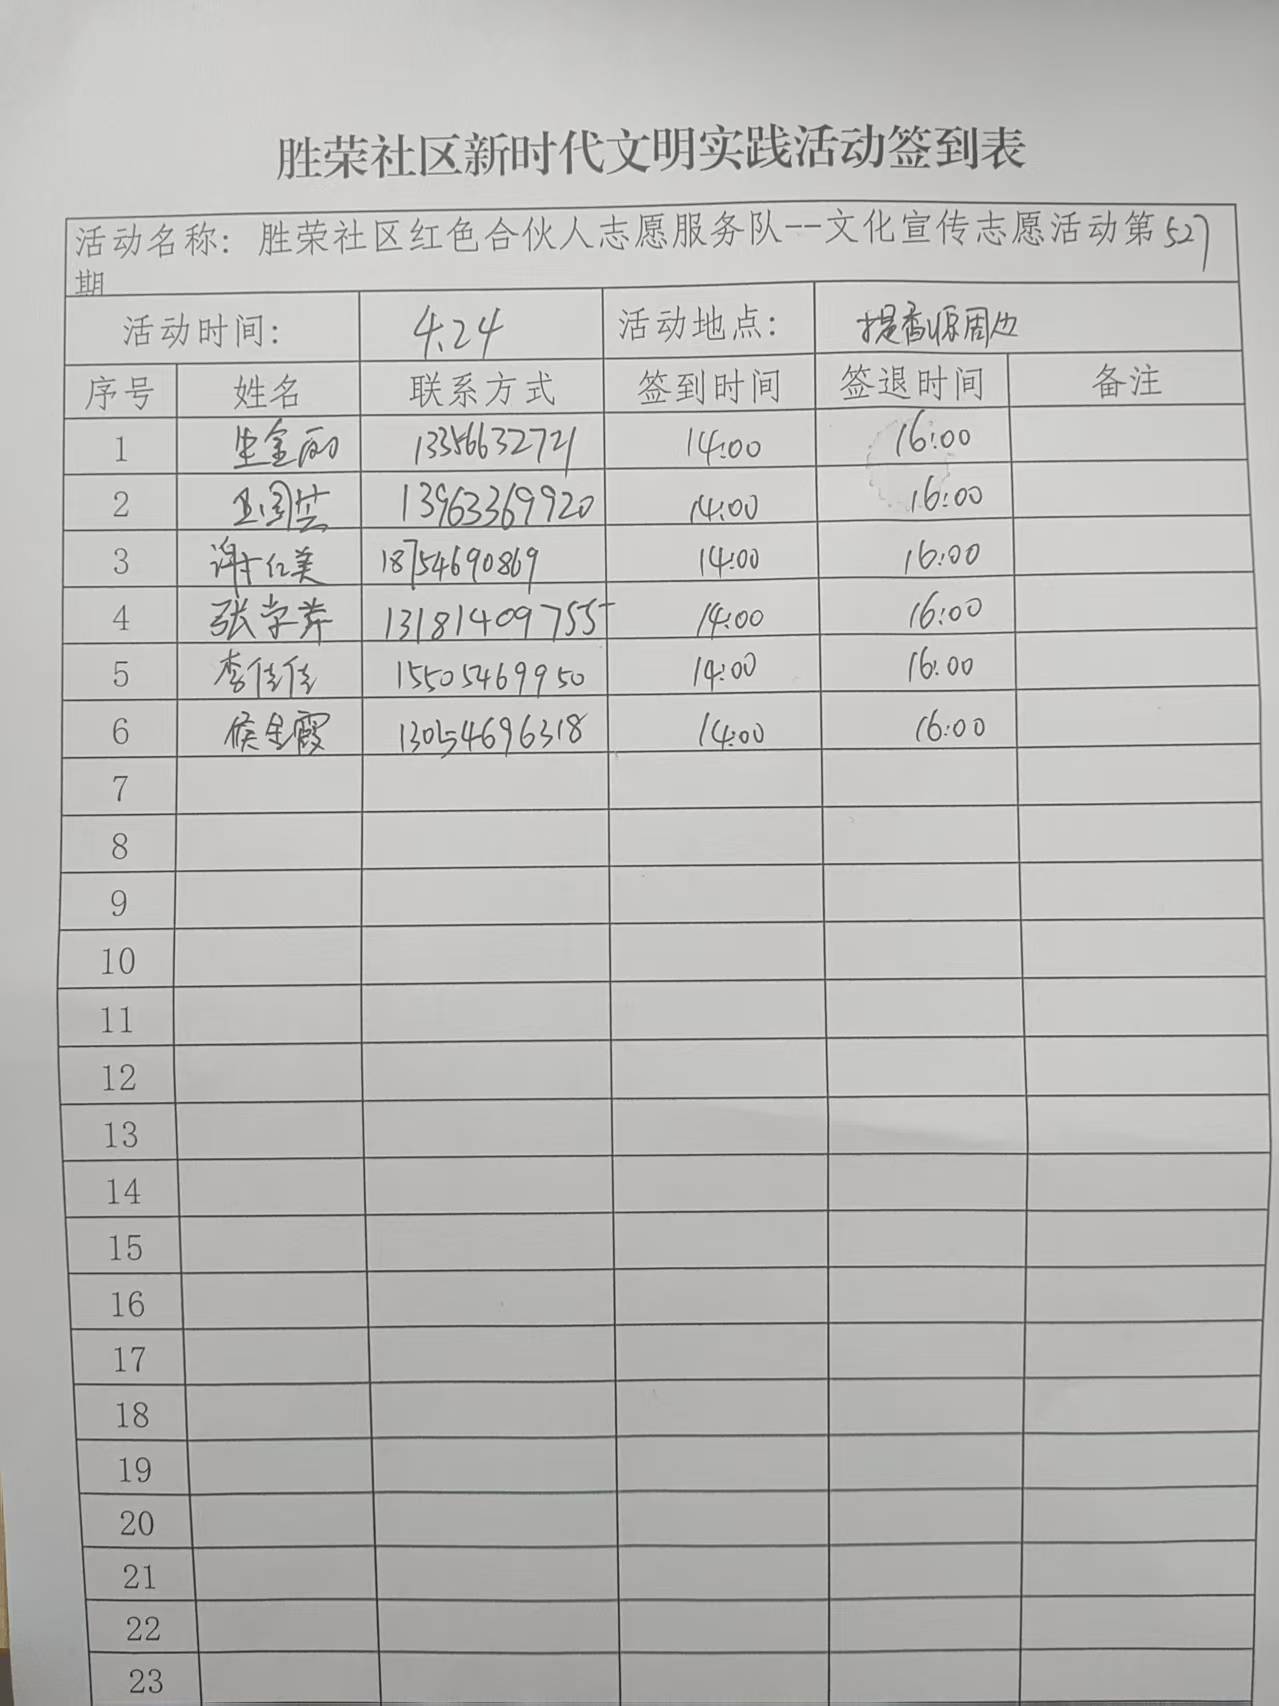 胜荣社区新时代文明实践活动签到表
活动名称：胜荣社区红色合伙人志愿服务队--文化宣传志愿活动第527
期
活动时间: 4.24 活动地点: 提香源周边
序号 姓名 联系方式 签到时间 签退时间 备注
1 生金丽 13356632721 14:00 16:00
2 王国芸 13963369920 14:00 16:00
3 谢红美 18754690869 14:00 16:00
4 张学萍 13181409755 14:00 16:00
5 李佳佳 15505469950 14:00 16:00
6 侯金霞 13054696318 14:00 16:00
7
8
9
10
11
12
13
14
15
16
17
18
19
20
21
22
23